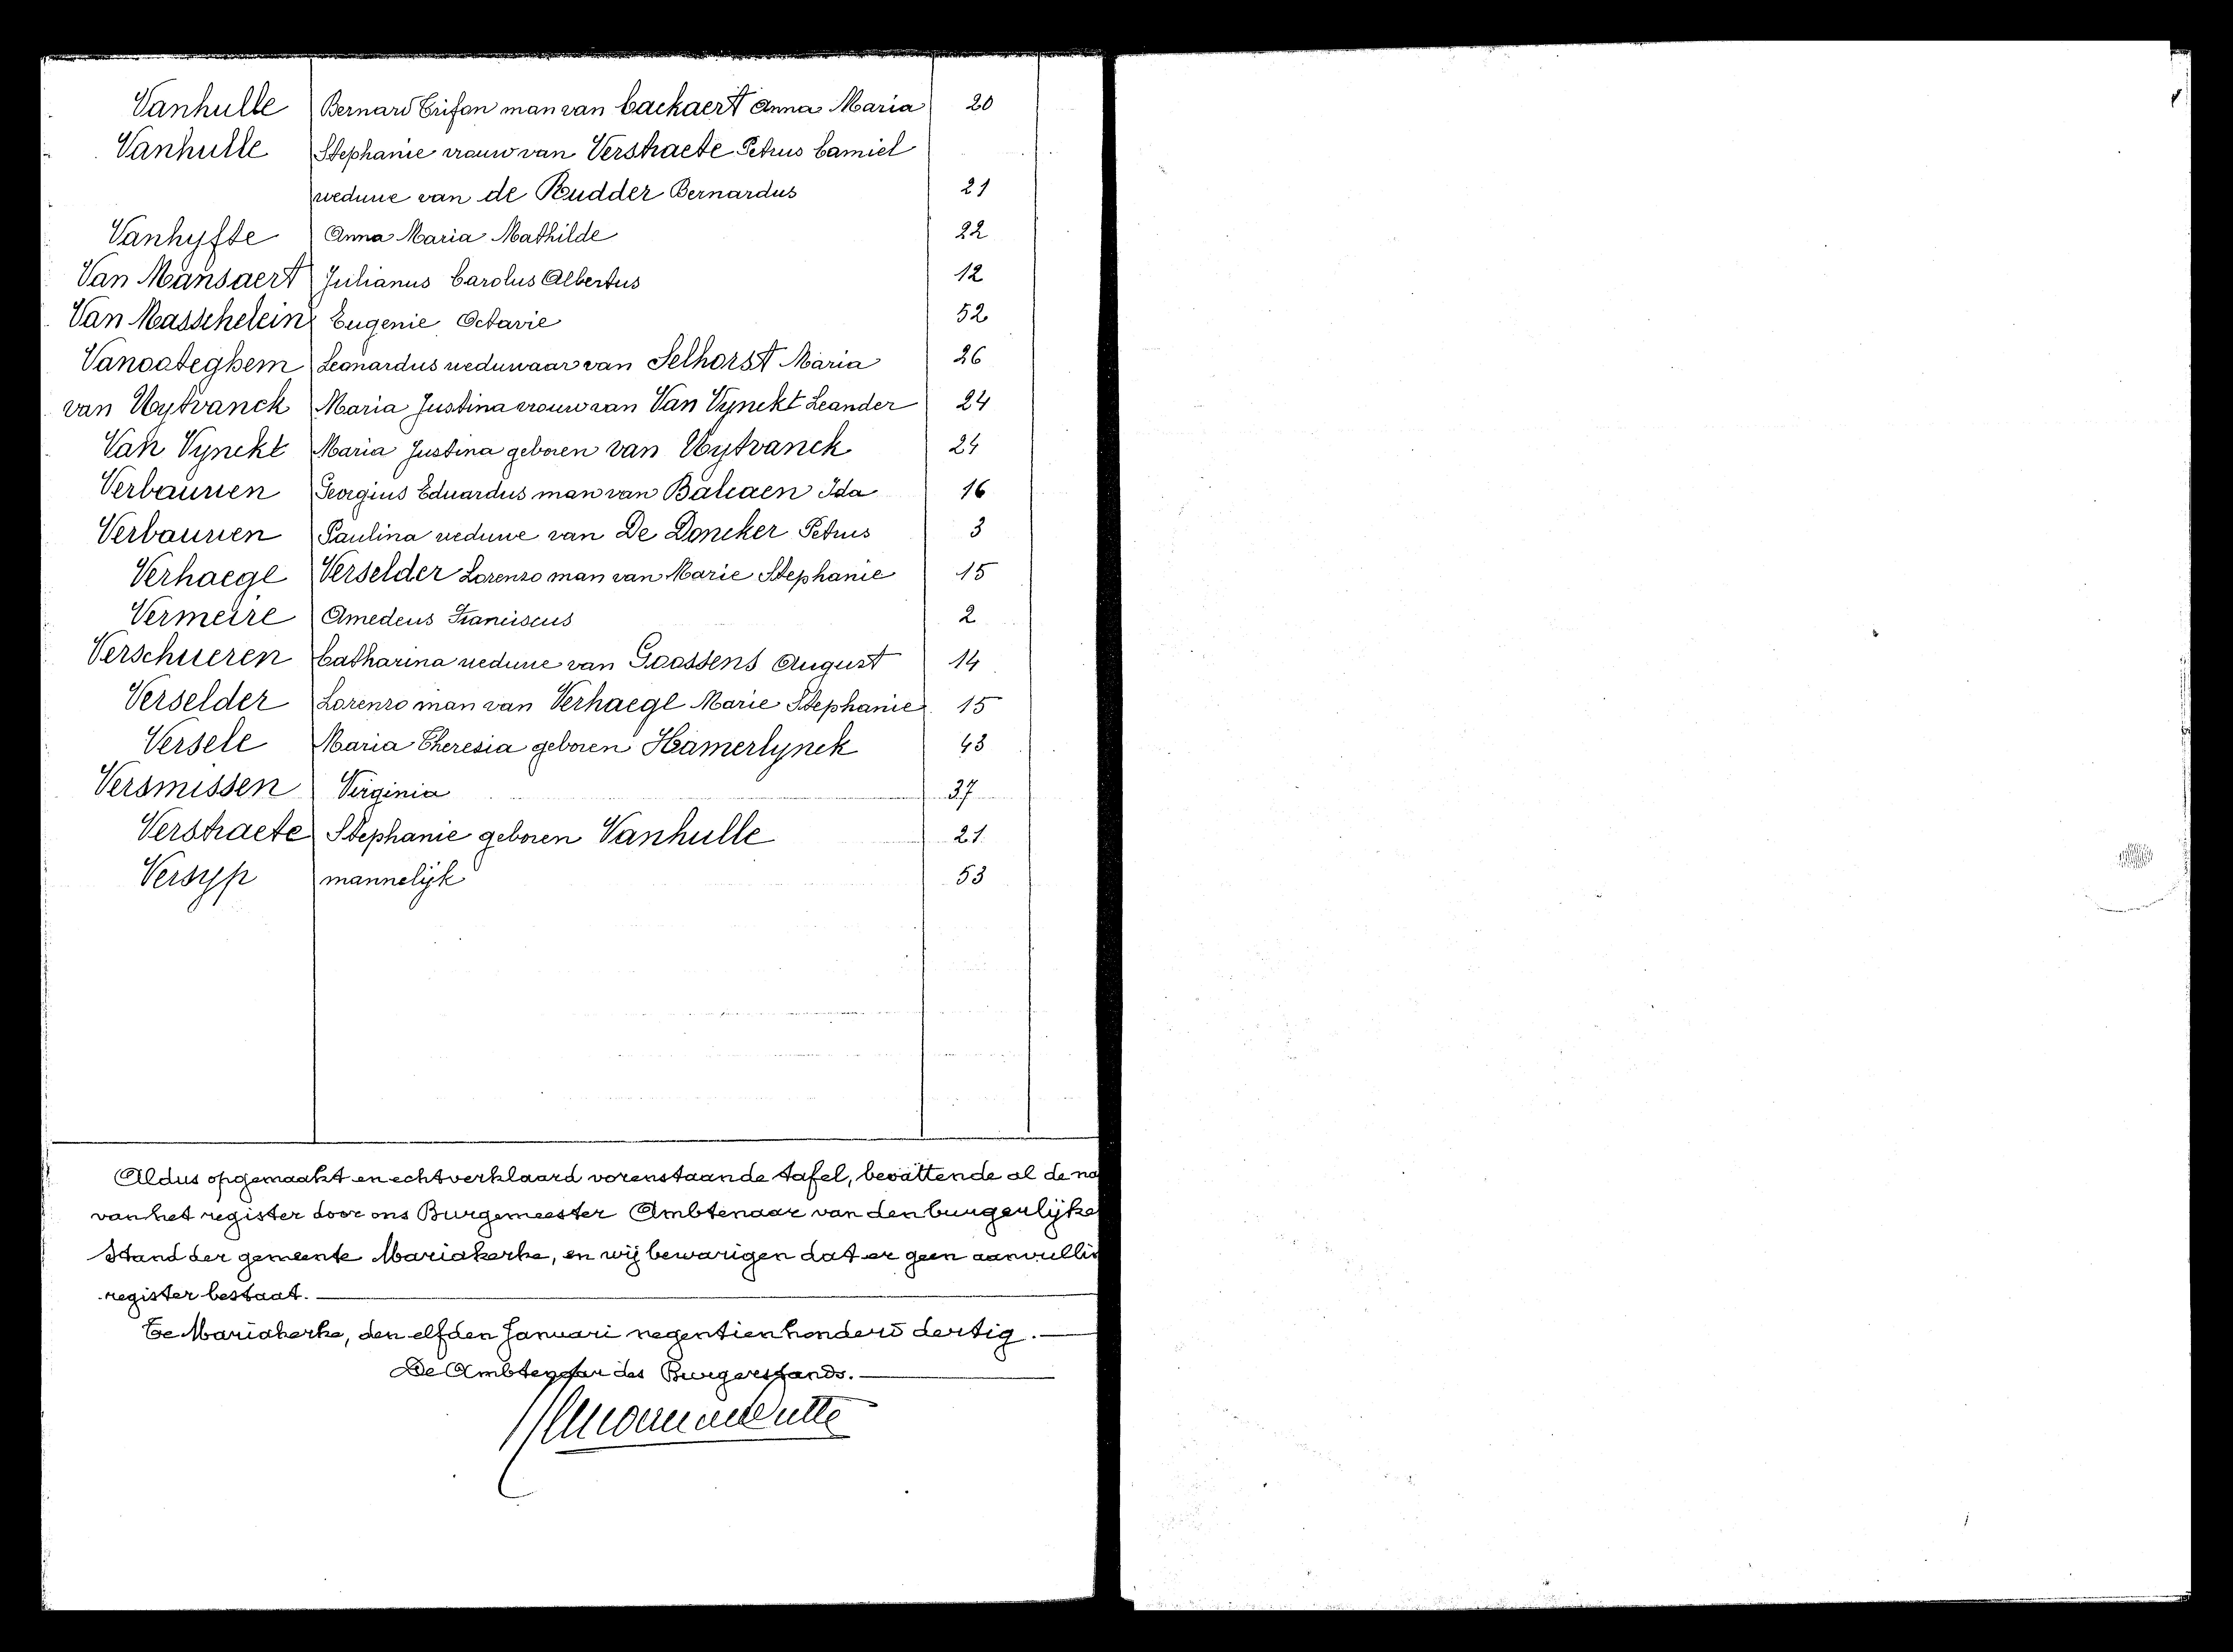 Vanhulle Bernard Trifon man van Caekaert Anna Maria 20
Vanhulle Stephanie vrouw van Verstraete Petrus Camiel
weduwe van de Rudder Bernardus 21
Vanhyfte Anna Maria Mathilde 22
Van Mansaert Julianus Carolus Albertus 12
Van Masschelein Eugenie Octavie 52
Vanooteghem Leonardus weduwaar van Selhorst Maria 26
van Uytvanck Maria Justina vrouw van Van Vynckt Leander 24
Van Vynckt Maria Justina geboren van Uytvanck 24
Verbauwen Georgius Eduardus man van Balcaen Ida 16
Verbauwen Paulina weduwe van De Doncker Petrus 3
Verhaege Verselder Lorenzo man van Marie Stephanie 15
Vermeire Amedeus Franciscus 2
Verschueren Catharina weduwe van Goossens August 14
Verselder Lorenzo man van Verhaege Marie Stephanie 15
Versele Maria Theresia geboren Hamerlynck 43
Versmissen Virginia 37
Verstraete Stephanie geboren Vanhulle 21
Versyp mannelijk 53
Aldus opgemaakt en echt verklaard vorenstaande tafel, bevattende al de na
van het register door ons Burgemeester Ambtenaar van den burgerlijke
Stand der gemeente Mariakerke, en wij bewarigen dat er geen aanvullin
register bestaat.
Te Mariakerke, den elfden Januari negentienhonderd dertig.
De Ambtenaar des Burgerstands.